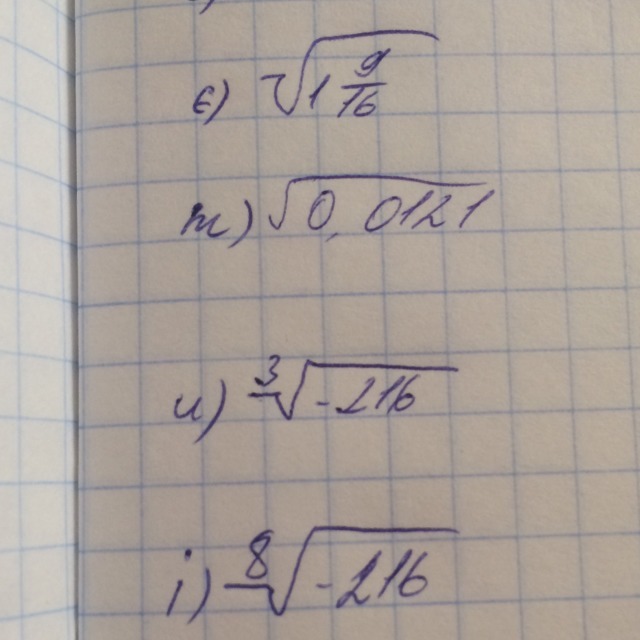 є) √1 9/16
ж) √0,0121
и) ³√-216
і) ⁸√-216